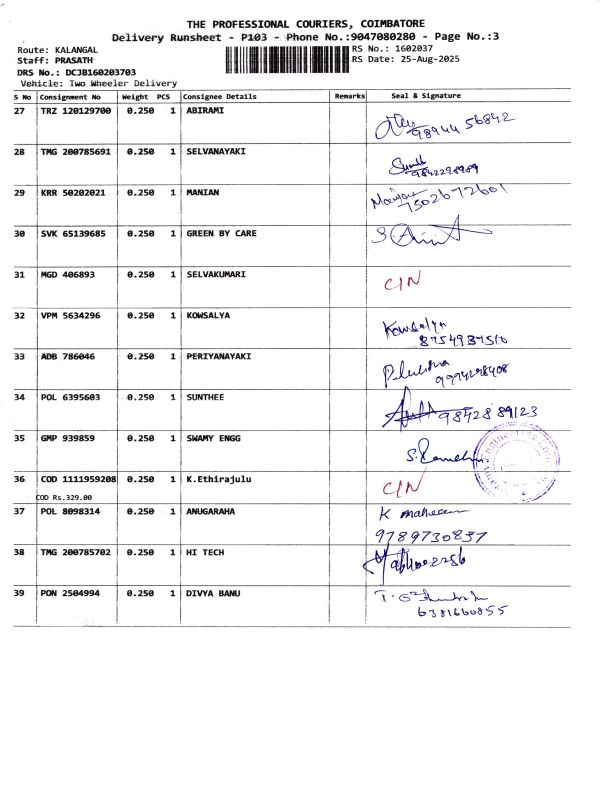 THE PROFESSIONAL COURIERS, COIMBATORE
Delivery Runsheet - P103 - Phone No.:9047080280 - Page No.:3
Route: KALANGAL RS No.: 1602037
Staff: PRASATH RS Date: 25-Aug-2025
DRS No.: DCJB160203703
Vehicle: Two Wheeler Delivery
S No Consignment No Weight PCS Consignee Details Remarks Seal & Signature
27 TRZ 120129700 0.250 1 ABIRAMI
98944 56842
28 TMG 200785691 0.250 1 SELVANAYAKI
9842298989
29 KRR 50202021 0.250 1 MANIAN
7502672601
30 SVK 65139685 0.250 1 GREEN BY CARE
31 MGD 406893 0.250 1 SELVAKUMARI C/N
32 VPM 5634296 0.250 1 KOWSALYA Kowsalya
8754937510
33 ADB 786046 0.250 1 PERIYANAYAKI
9994298408
34 POL 6395603 0.250 1 SUNTHEE 98428 89123
35 GMP 939859 0.250 1 SWAMY ENGG
36 COD 1111959208 0.250 1 K.Ethirajulu C/N
COD Rs.329.00
37 POL 8098314 0.250 1 ANUGARAHA K
9789730837
38 TMG 200785702 0.250 1 HI TECH
39 PON 2504994 0.250 1 DIVYA BANU
6381660855